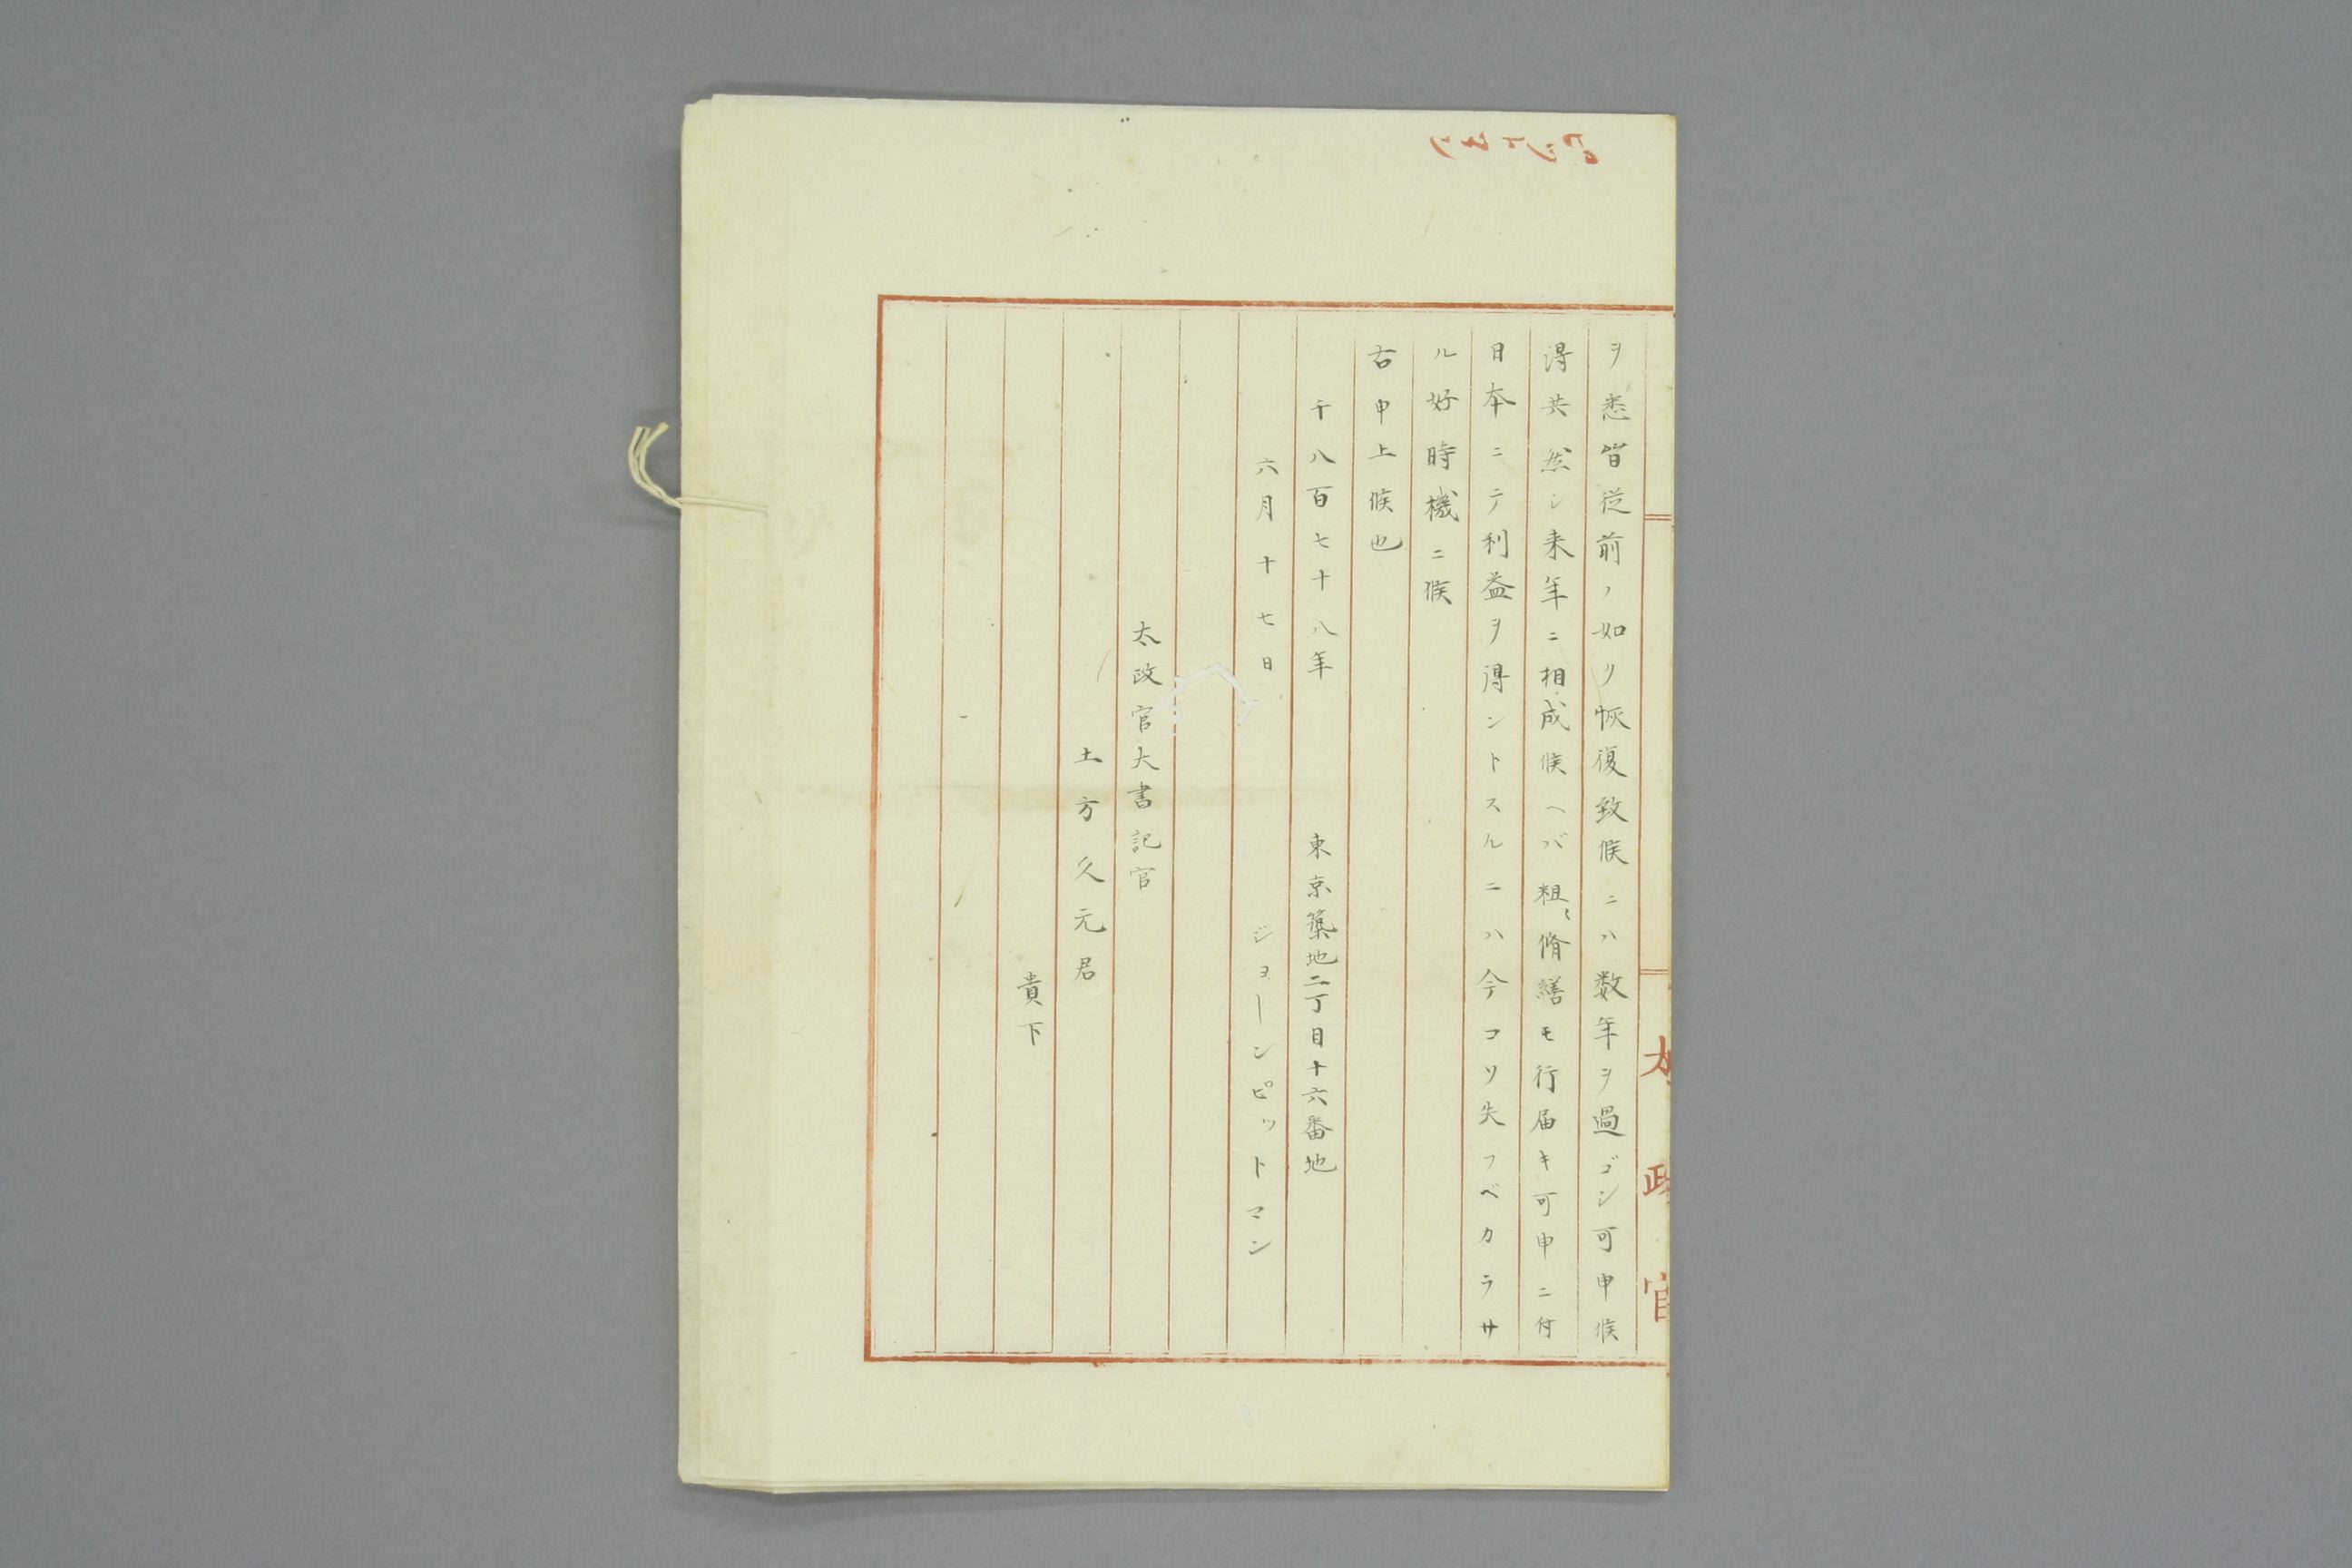 太政官
ヲ悉皆従前ノ如ク恢復致候ニハ数年ヲ過ゴシ可申候
得共然シ来年ニ相成候ヘバ粗々脩繕モ行届キ可申ニ付
日本ニテ利益ヲ得ントスルニハ今コソ失フベカラサ
ル好時機ニ候
右申上候也
千八百七十八年 東京築地二丁目十六番地
六月十七日 ジョーンピットマン
太政官大書記官
土方久元君
貴下